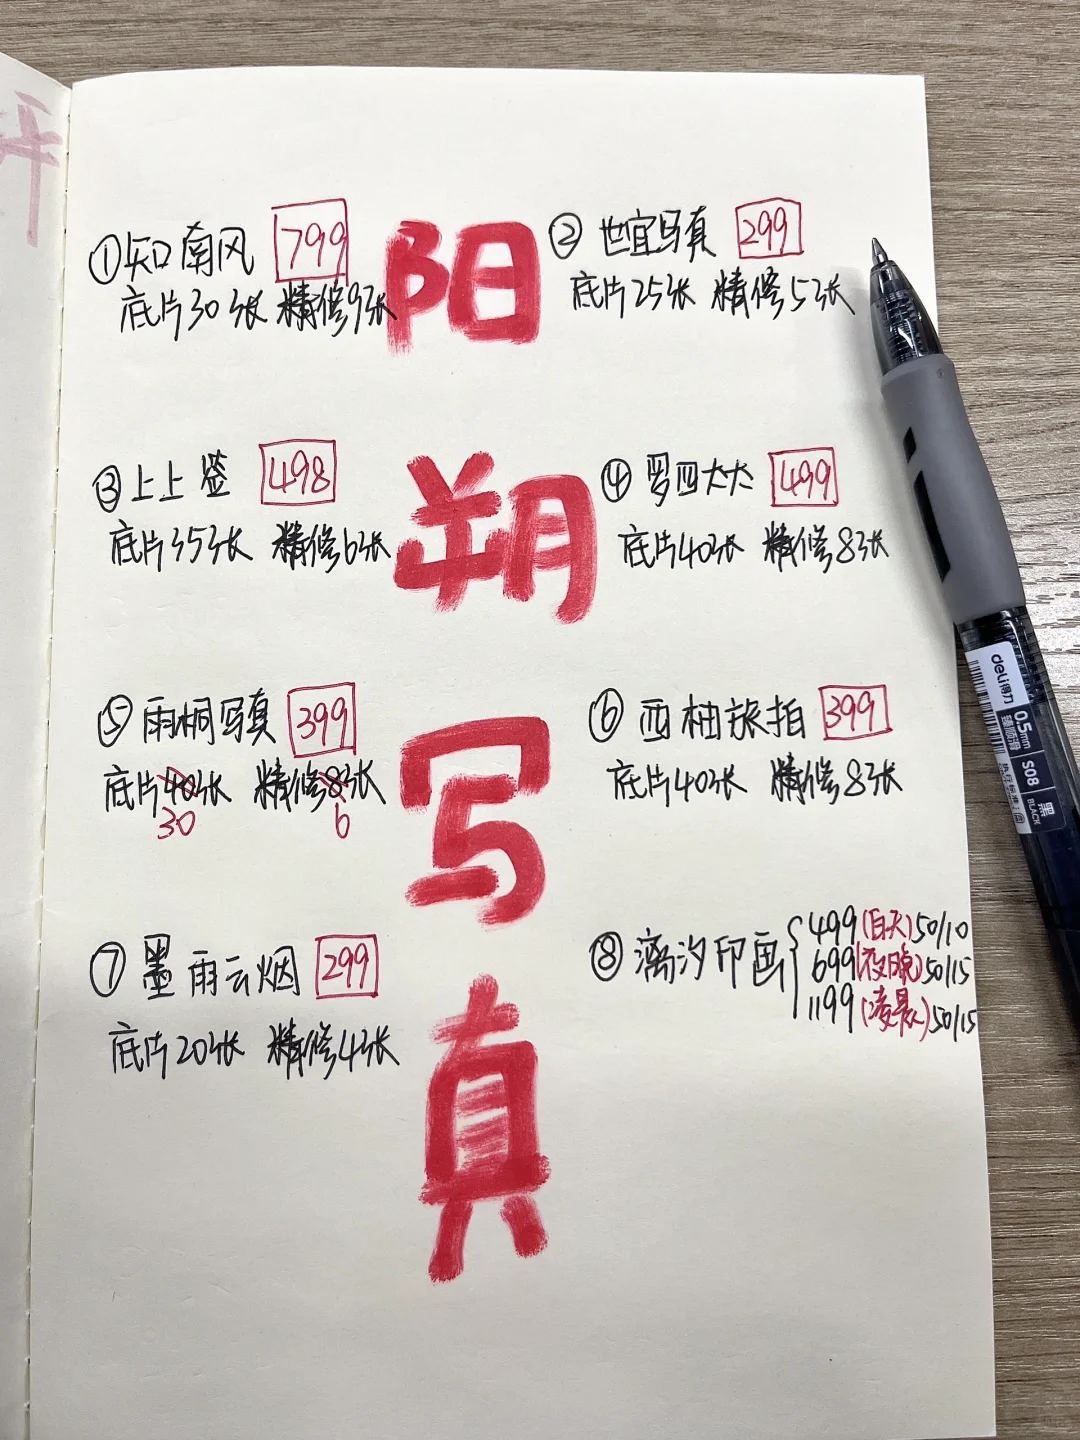 阳朔写真
①知南风 799
底片30张 精修9张
②世宜写真 299
底片25张 精修5张
③上上签 498
底片35张 精修6张
④罗四大大 499
底片40张 精修83张
⑤雨桐写真 399
底片40张 精修8张
30 6
⑥西柚旅拍 399
底片40张 精修8张
⑦墨雨云烟 299
底片20张 精修4张
⑧漓汐印画
499(白天)50/10
699(夜晚)50/15
1199(凌晨)50/15
deli得力
0.5mm
S08
黑
BLACK